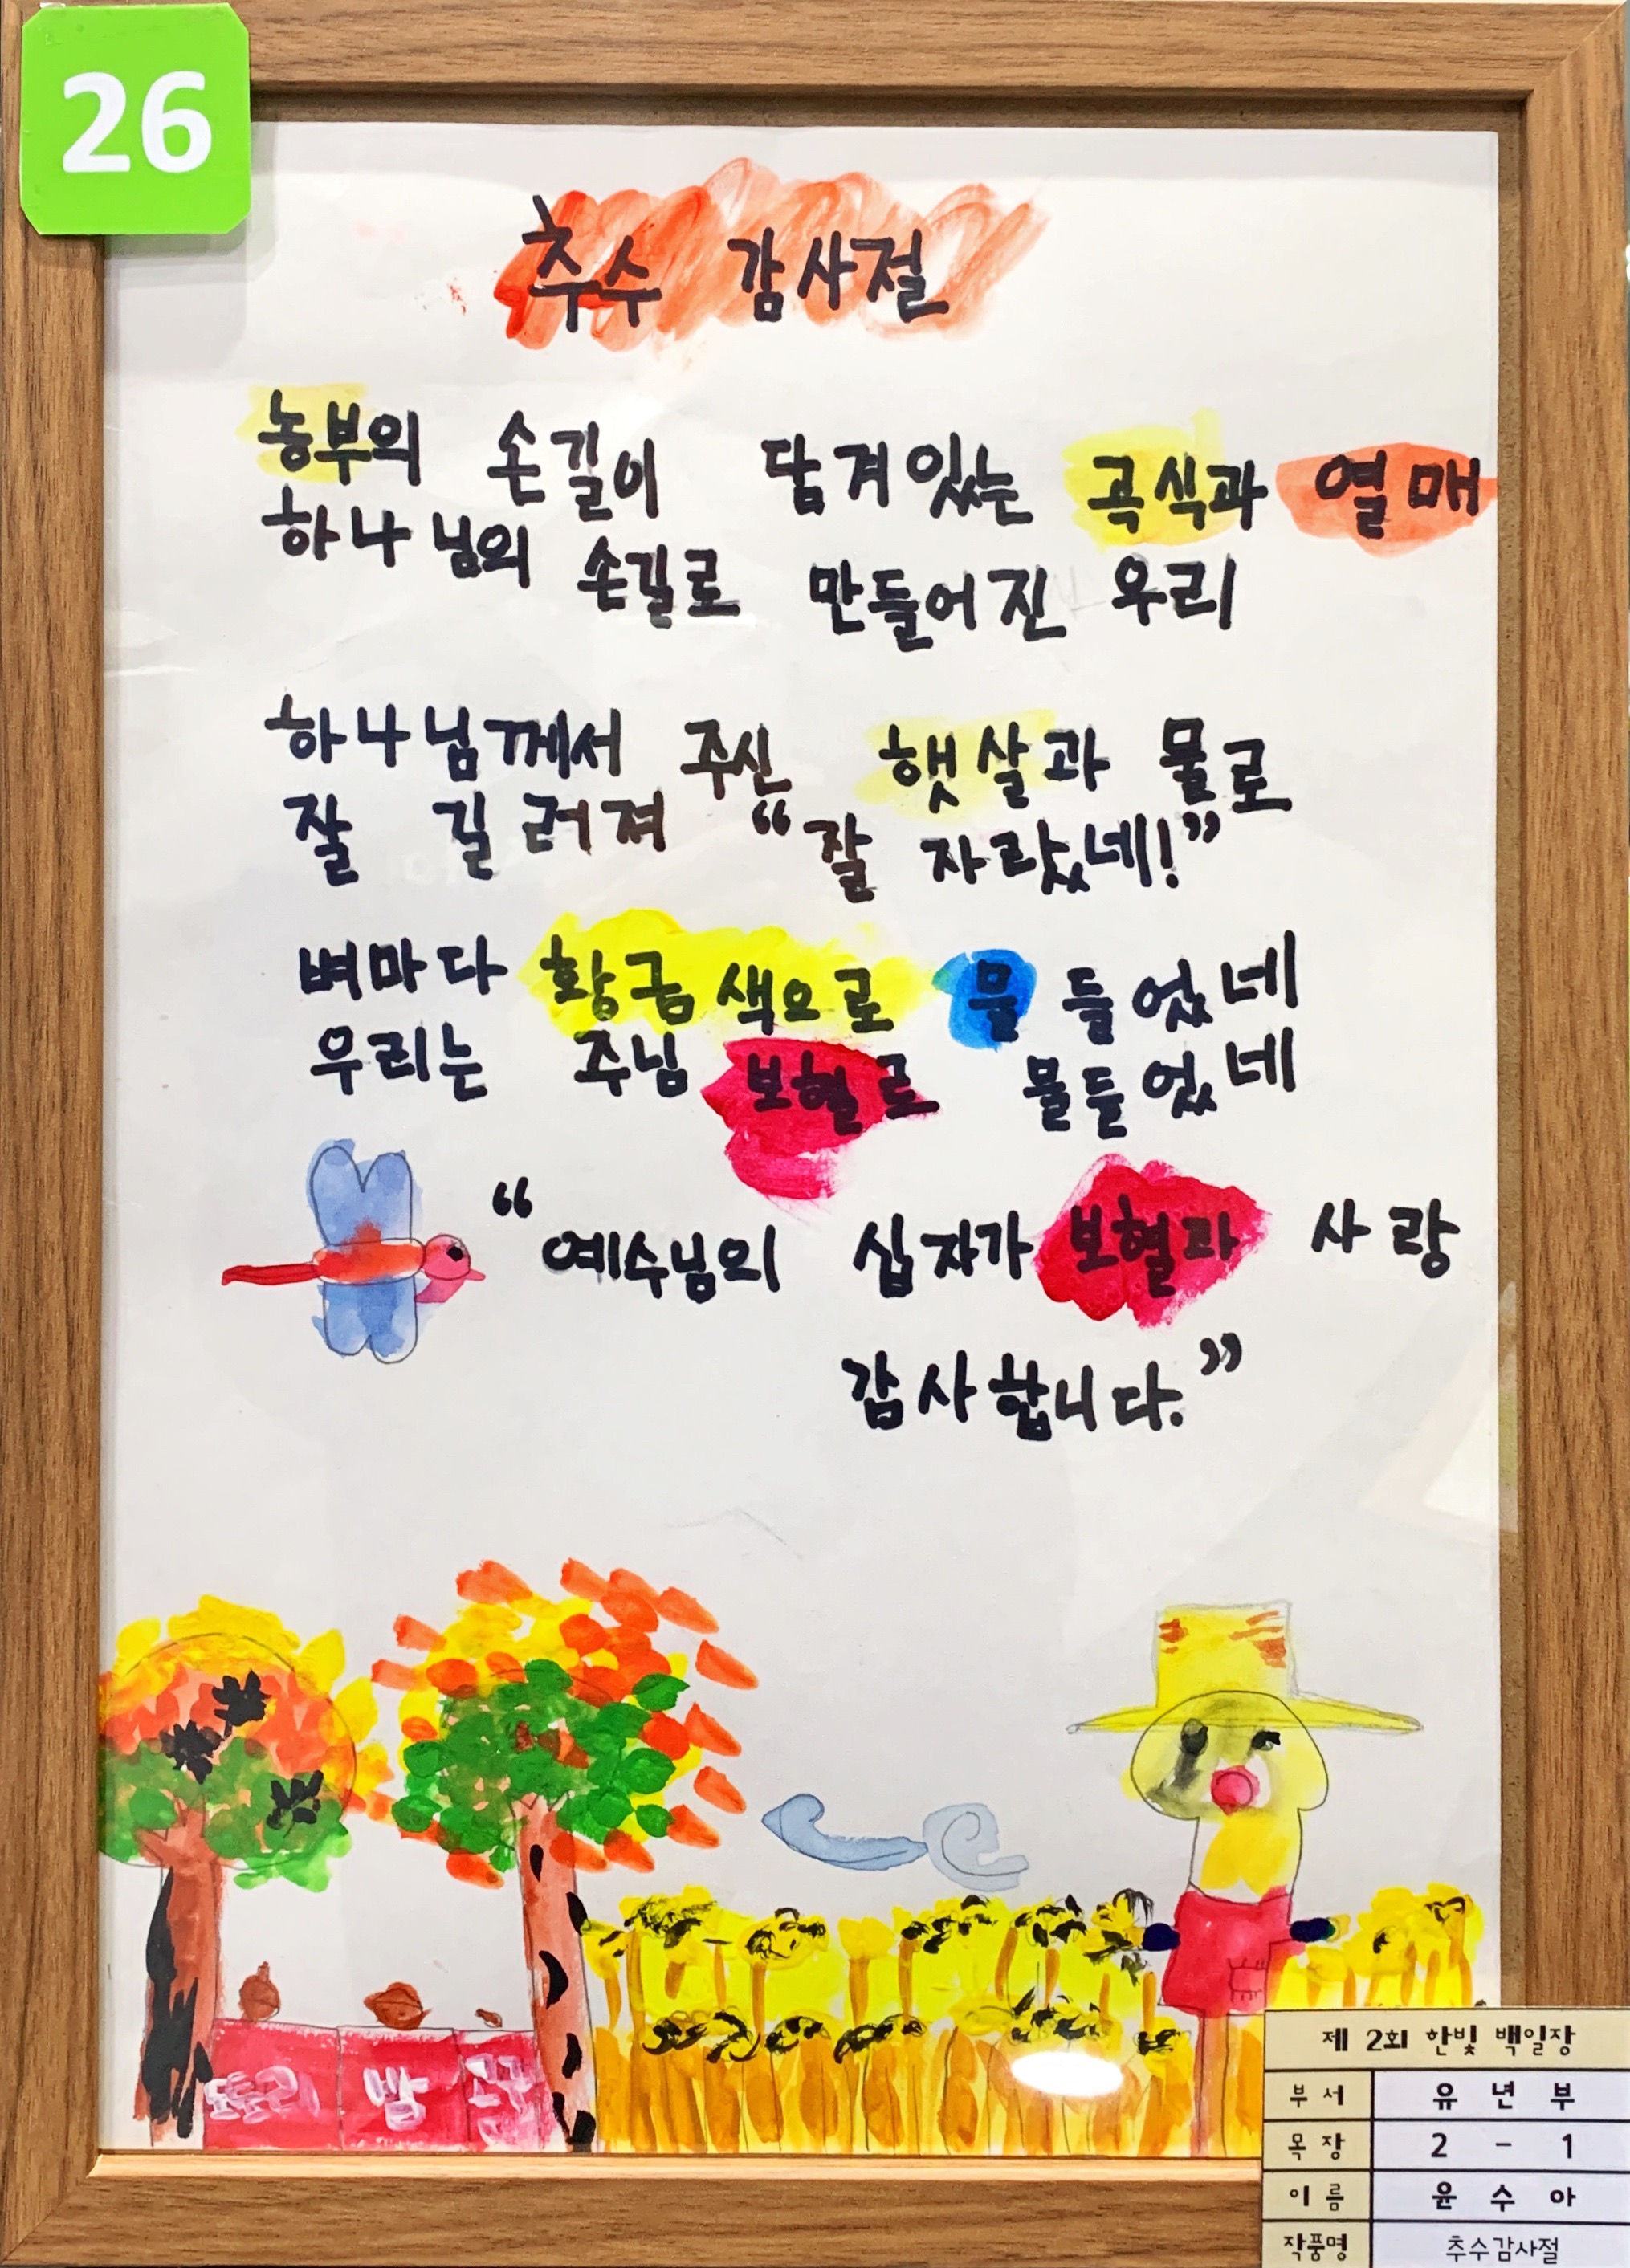 26
추수 감사절
농부의 손길이 담겨있는 곡식과 열매
하나님의 손길로 만들어진 우리
하나님께서 주신 햇살과 물로
잘 길러져 “잘 자랐네!”
벼마다 황금색으로 물들었네
우리는 주님 보혈로 물들었네
“예수님의 십자가 보혈과 사랑
감사합니다.”
도토리 밤
제 2회 한빛 백일장
부서 유년부
목장 2 - 1
이름 윤수아
작품명 추수감사절